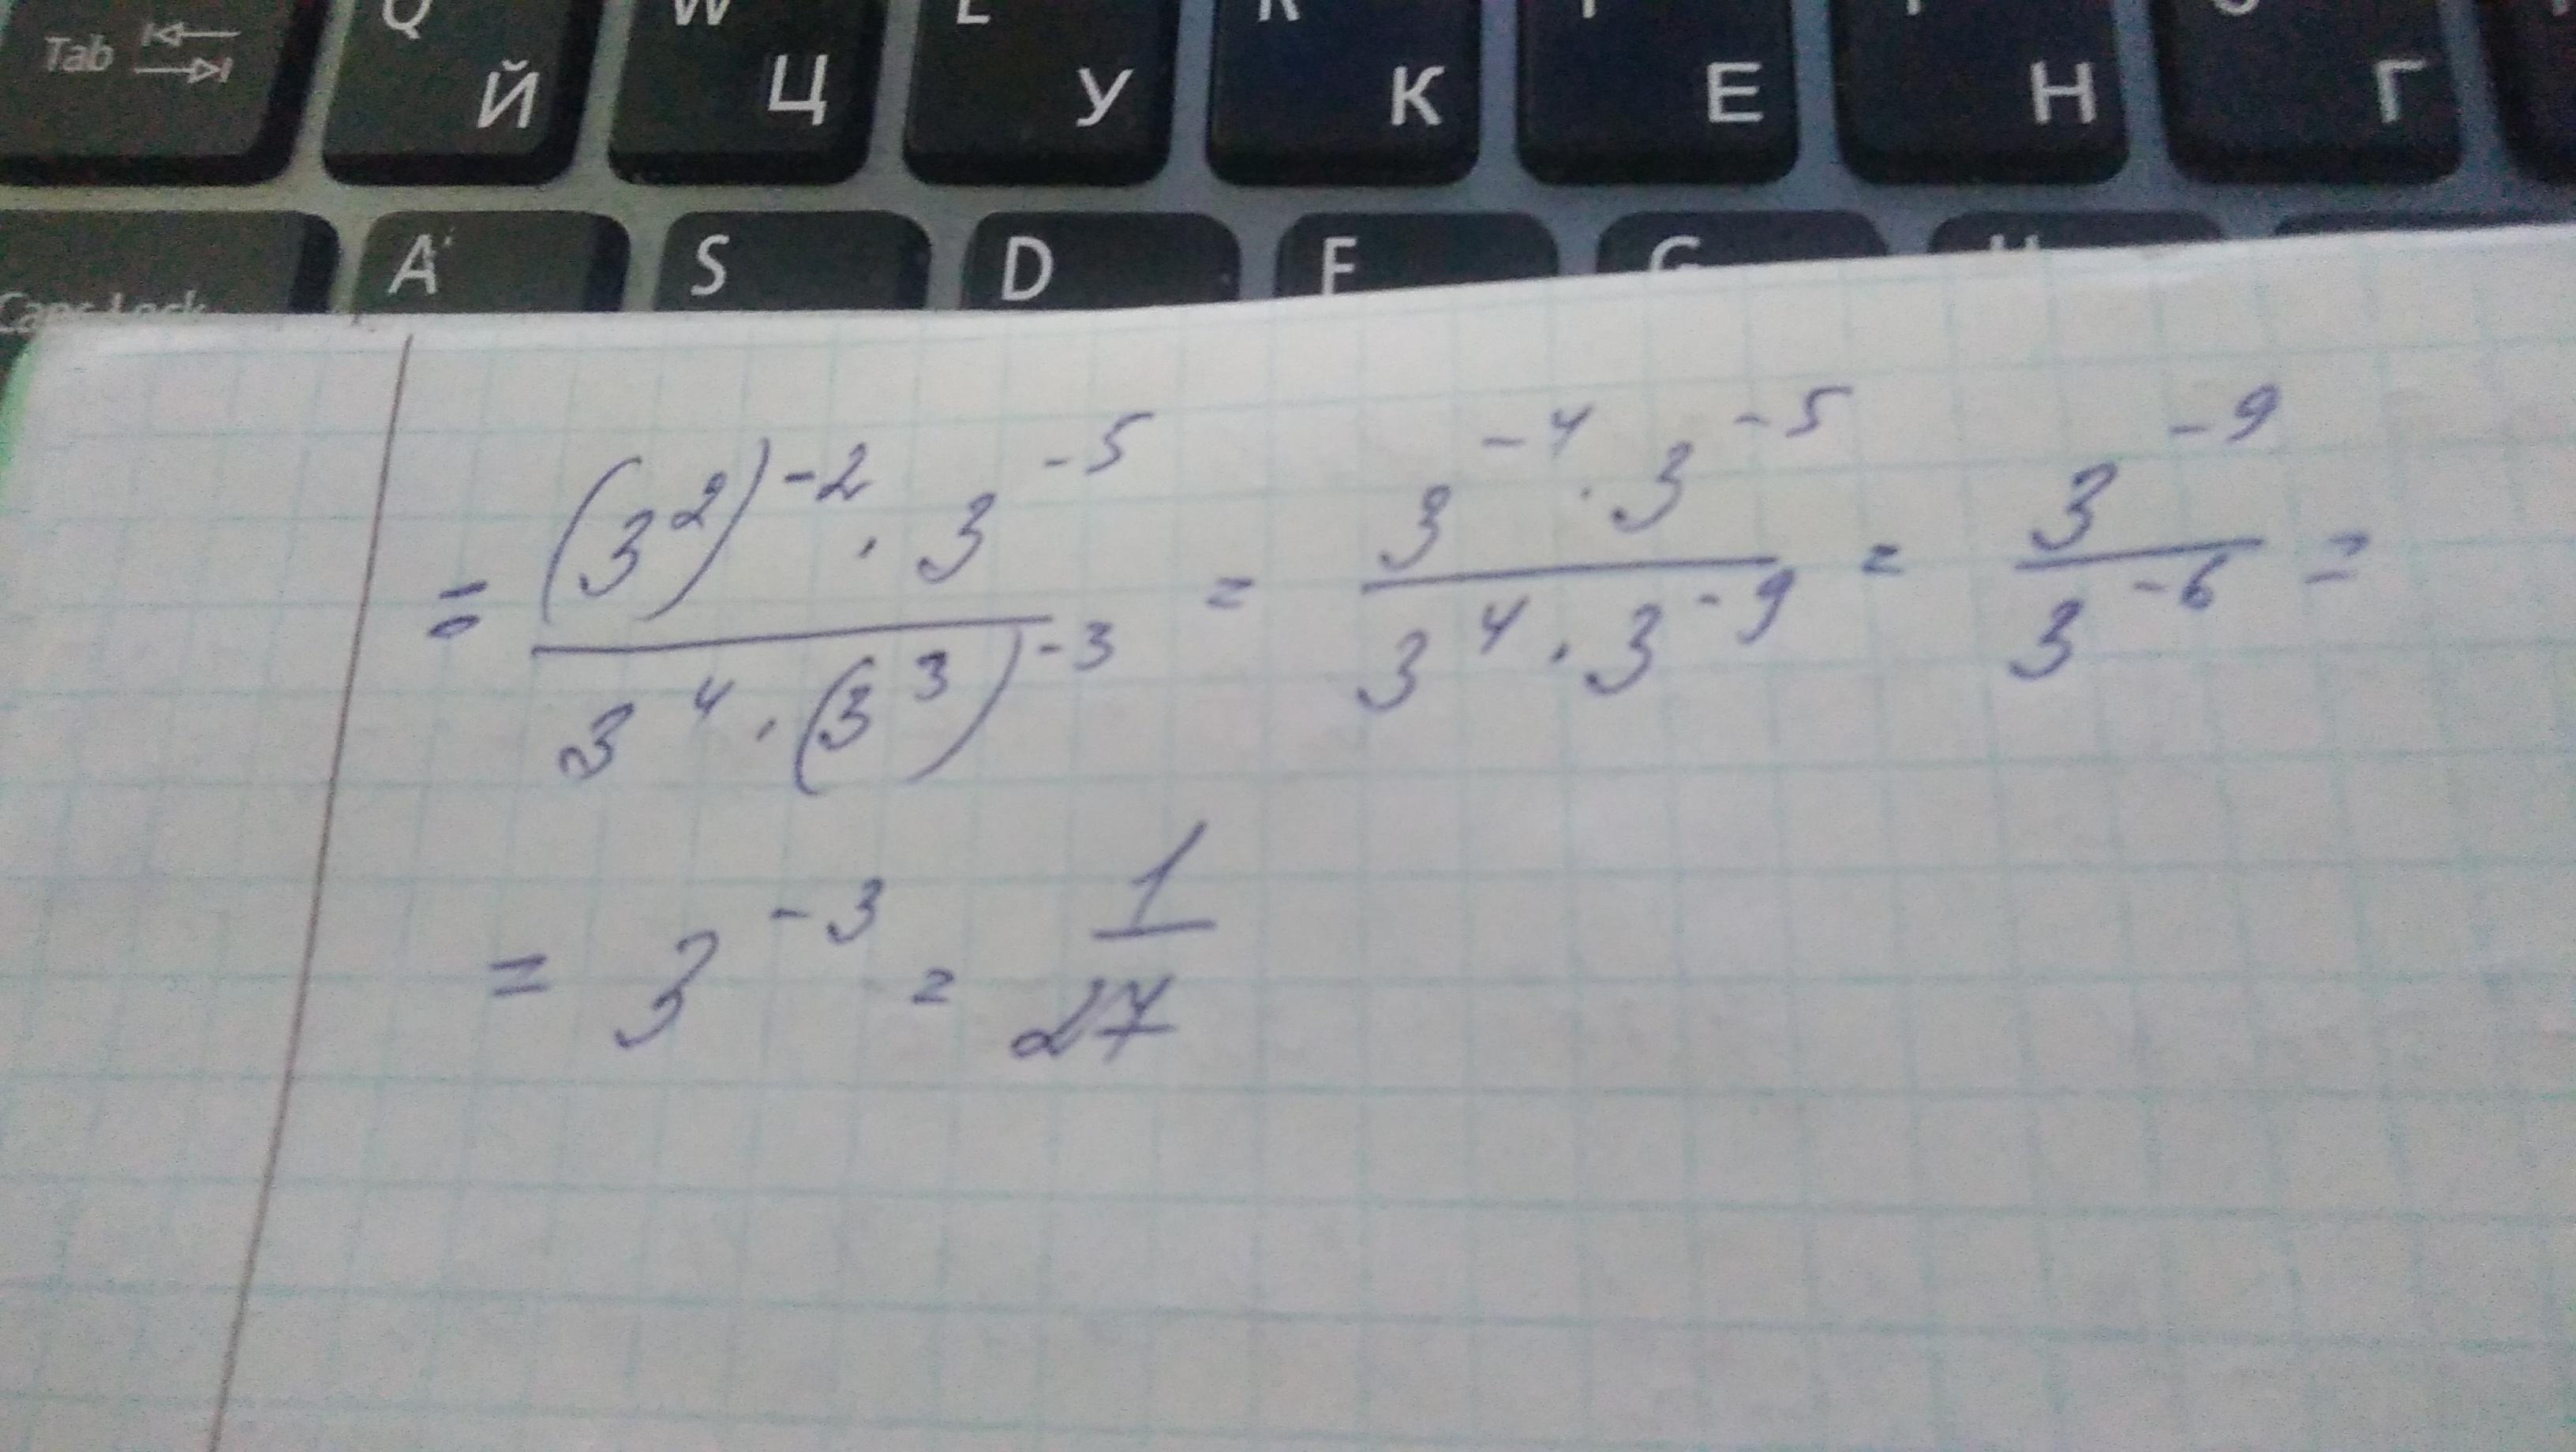 Tab Q Й W Ц У К Е Н Г
Caps Lock A S D F G H
= \frac{(3^2)^{-2} \cdot 3^{-5}}{3^4 \cdot (3^3)^{-3}} = \frac{3^{-4} \cdot 3^{-5}}{3^4 \cdot 3^{-9}} = \frac{3^{-9}}{3^{-6}} =
= 3^{-3} = \frac{1}{27}